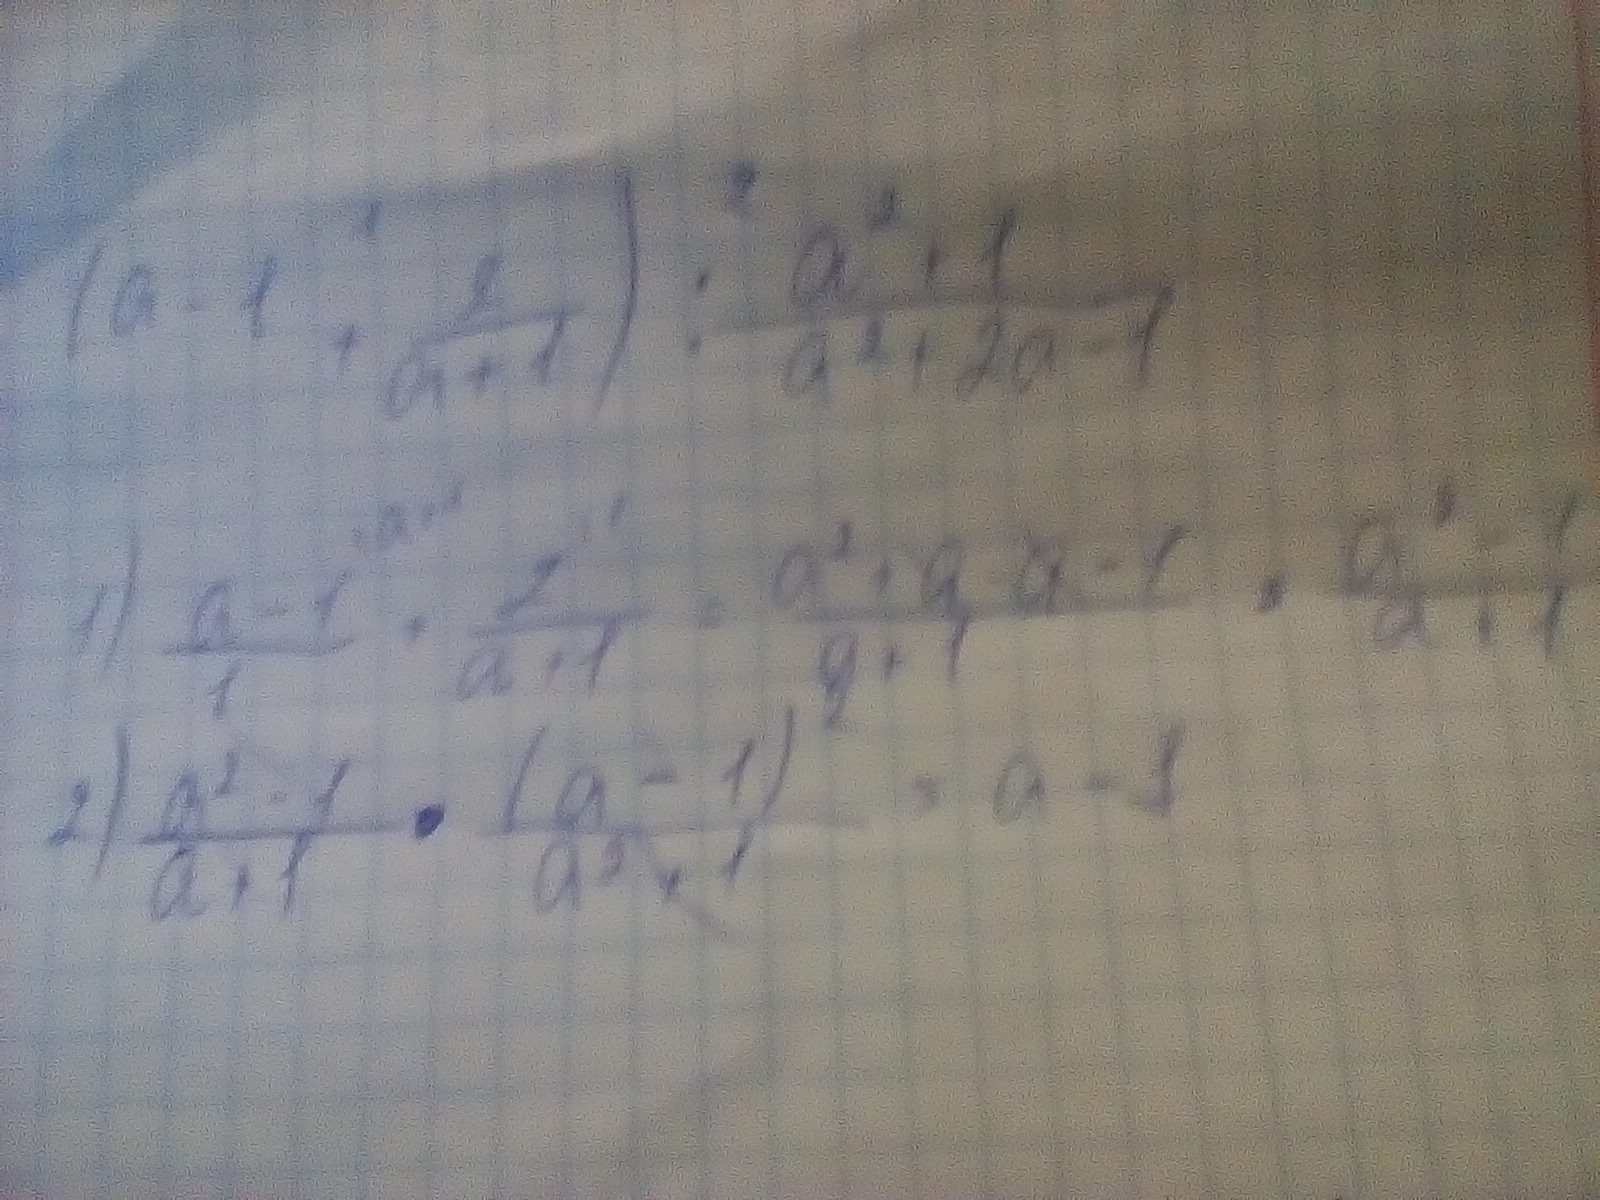 (a - 1 + 2/(a+1)) : (a² + 1)/(a² + 2a - 1)
1) (a-1)/1 + 2/(a+1) = (a² + a - a - 1)/(a+1) = (a² - 1)/(a+1)
2) (a² - 1)/(a+1) · (a - 1)/(a² + 1) = a - 1